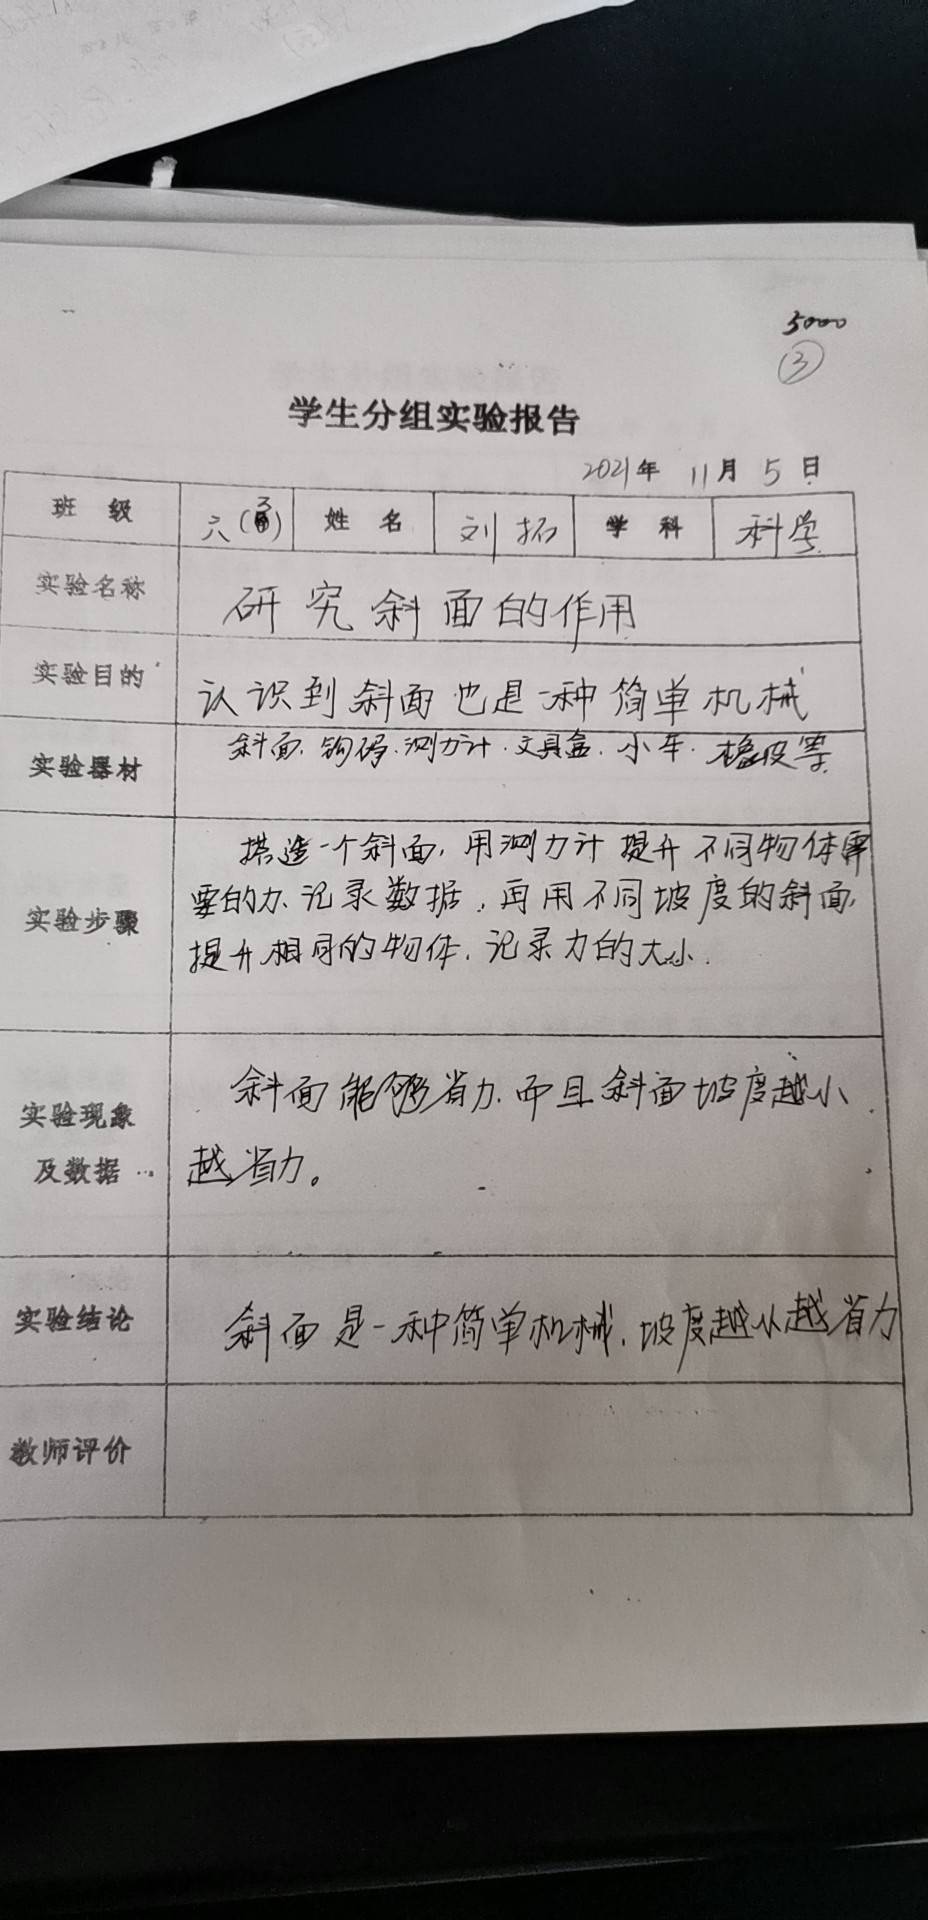 5000
③
学生分组实验报告
2021年 11月 5日
班 级 六( ) 姓 名 刘拓 学 科 科学
实验名称 研究斜面的作用
实验目的 认识到斜面也是一种简单机械
实验器材 斜面.钩码.测力计.文具盒.小车.橡皮等
搭造一个斜面,用测力计提升不同物体需
实验步骤 要的力、记录数据,再用不同坡度的斜面,
提升相同的物体.记录力的大小.
实验现象 斜面能够省力.而且斜面坡度越小
及数据 越省力。
实验结论 斜面是一种简单机械.坡度越小越省力
教师评价